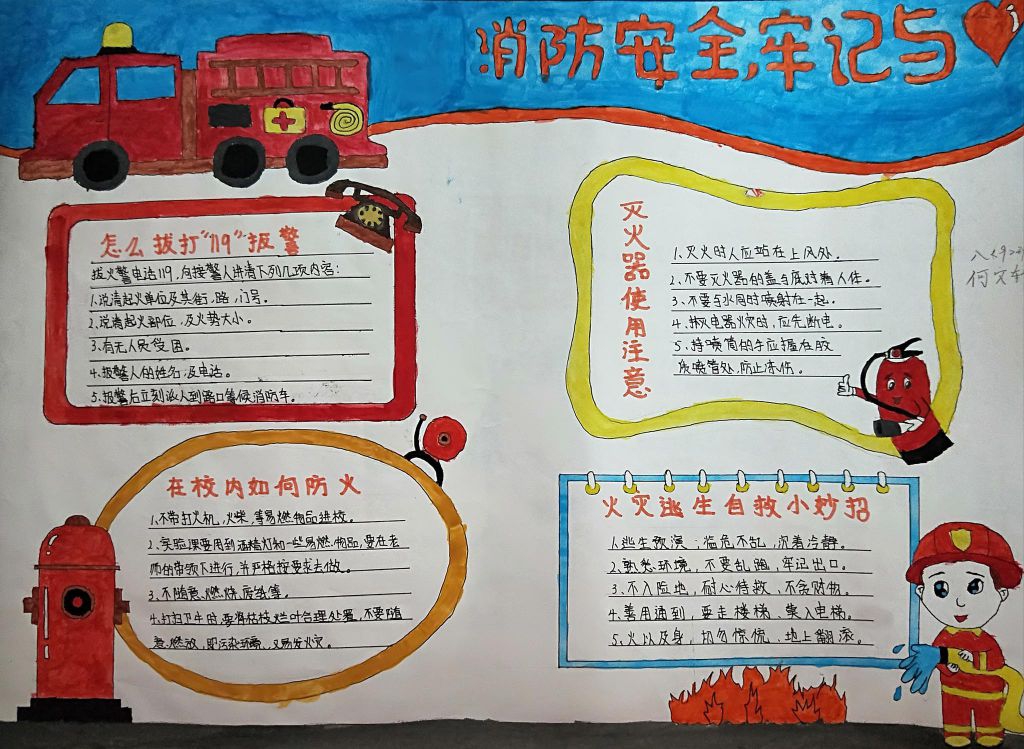 消防安全,牢记与
怎么拔打“119”报警
拔火警电话119,向接警人讲清下列几项内容:
1.说清起火单位及其街,路,门号。
2.说清起火部位,及火势大小。
3.有无人员受困。
4.报警人的姓名,及电话。
5.报警后立刻派人到路口等候消防车。
灭火器使用注意
1.灭火时人应站在上风处。
2.不要灭火器的盖与底对着人体。
3.不要与水同时喷射在一起。
4.扑灭电器火灾时,应先断电。
5.持喷筒的手应握在胶
质喷管处,防止冻伤。
在校内如何防火
1.不带打火机,火柴,等易燃物品进校。
2.实验课要用到酒精灯和一些易燃物品,要在老
师的带领下进行,并严格按要求去做。
3.不随意燃烧废纸等。
4.打扫卫生时,要将枯枝烂叶合理处置,不要随
意燃放,即污染环境,又易发火灾。
火灾逃生自救小妙招
1.逃生预演;临危不乱,沉着冷静。
2.熟悉环境,不要乱跑,牢记出口。
3.不入险地,耐心待救,不贪财物。
4.善用通到,要走楼梯,莫入电梯。
5.火以及身,切勿惊慌,地上翻滚。